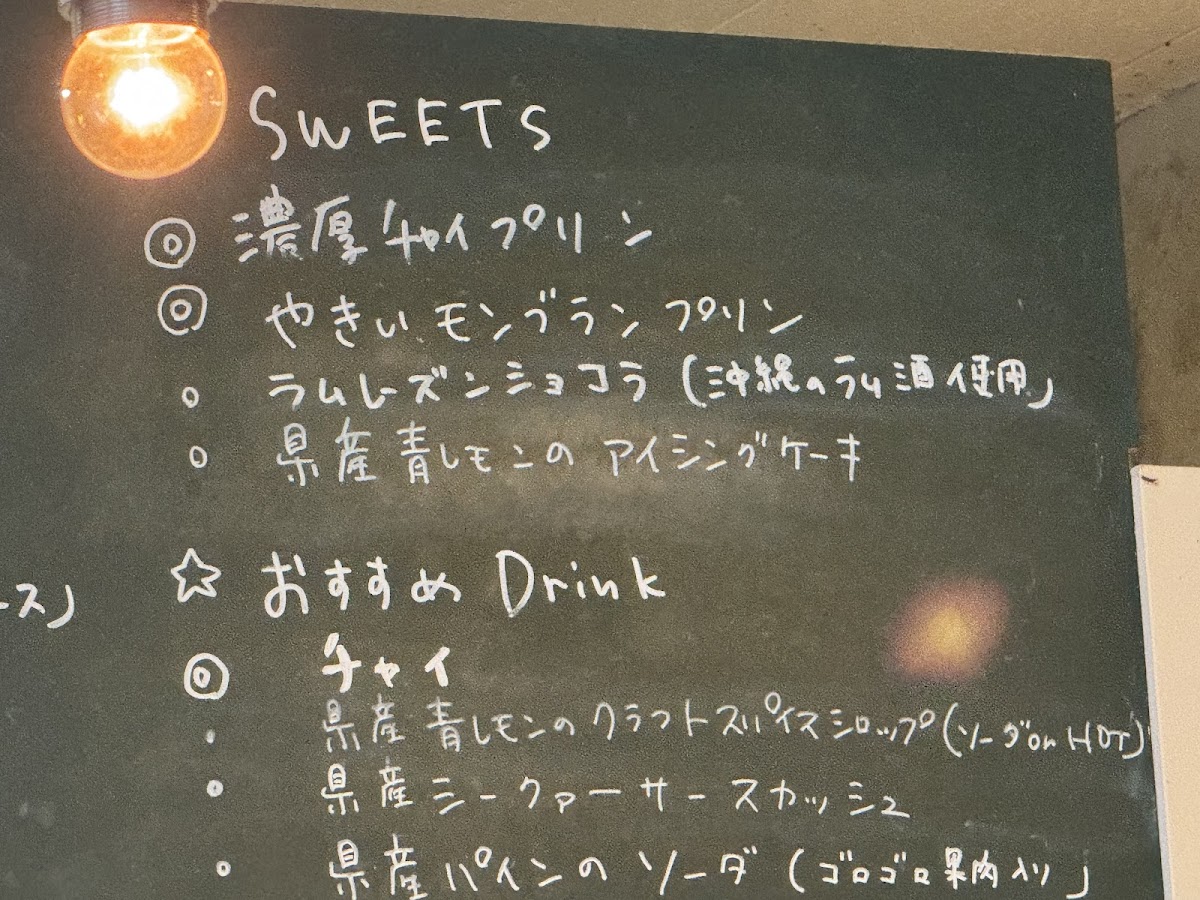 SWEETS
◎ 濃厚チャイプリン
◎ やきいモンブランプリン
○ ラムレーズンショコラ (沖縄のラム酒使用)
○ 県産青レモンの アイシングケーキ
☆ おすすめ Drink
ース)
◎ チャイ
・ 県産 青レモンのクラフトスパイスシロップ (ソーダor HOT)
○ 県産シークァーサースカッシュ
○ 県産パインの ソーダ (ゴロゴロ果肉入り)